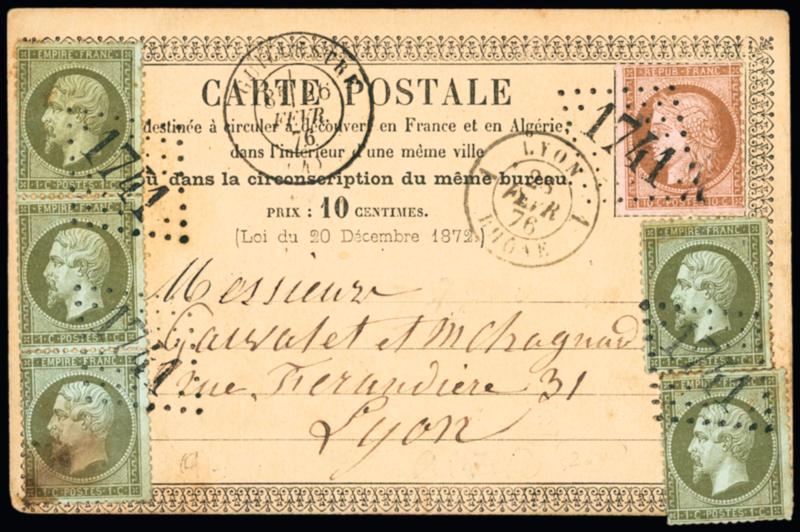 EMPIRE FRANC
1·C·POSTES·1·C
1741
EMPIRE FRANC
1·C·POSTES·1·C
1741
EMPIRE FRANC
1·C·POSTES·1·C
REPUB·FRANC
1741
CARTE POSTALE
destinée à circuler à découvert en France et en Algérie,
dans l'intérieur d'une même ville
ou dans la circonscription du même bureau.
PRIX : 10 CENTIMES.
(Loi du 20 Décembre 1872)
FEVR
76
LYON
FEVR
76
RHONE
Messieurs
et
rue Ferandière 31
Lyon
EMPIRE FRANC
1·C·POSTES·1·C
1741
EMPIRE FRANC
1·C·POSTES·1·C